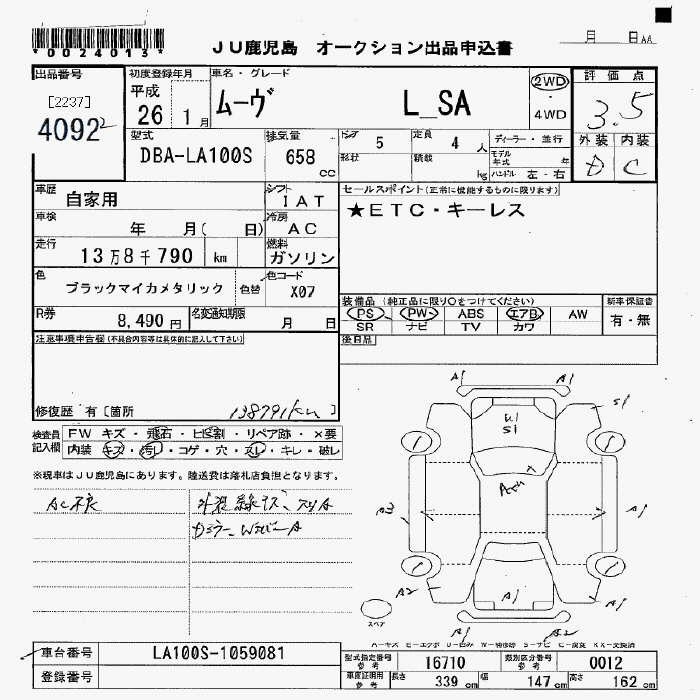 *0024013*
JU鹿児島 オークション出品申込書
月 日AA
出品番号
[2237]
4092
初度登録年月
平成
26 1月
車名・グレード
ムーヴ L_SA
2WD
4WD
評価点
3.5
外装 内装
D C
型式
DBA-LA100S
排気量
658
cc
ドア 5
形状
定員 4 人
積載 kg
ディーラー・並行
モデル年式 年
ハンドル 左・右
車歴
自家用
シフト
IAT
車検
年 月( 日)
冷房
AC
走行
13万8千790 km
燃料
ガソリン
色
ブラックマイカメタリック
色替
色コード
X07
R券
8,490 円
名変通知期限
月 日
セールスポイント(正常に機能するものに限ります)
★ETC・キーレス
装備品(純正品に限り○をつけてください)
PS PW ABS エアB AW
SR ナビ TV カワ
新車保証書
有・無
後日品
注意事項申告欄(不具合内容等は具体的に記入して下さい)
修復歴 有[箇所 138791km]
検査員
記入欄
FW キズ・飛石・ヒビ割・リペア跡・×要
内装・キズ・汚レ・コゲ・穴・スレ・キレ・破レ
※現車はJU鹿児島にあります。陸送費は落札店負担となります。
AC不良
A1 A1
S1
U1
S1
A3
A1
A2
A1
A1
A1
A2
スペア
車台番号
LA100S-1059081
登録番号
型式指定番号
参考
16710
類別区分番号
参考
0012
車庫証明用
参考
長さ 339 cm
幅 147 cm
高さ 162 cm